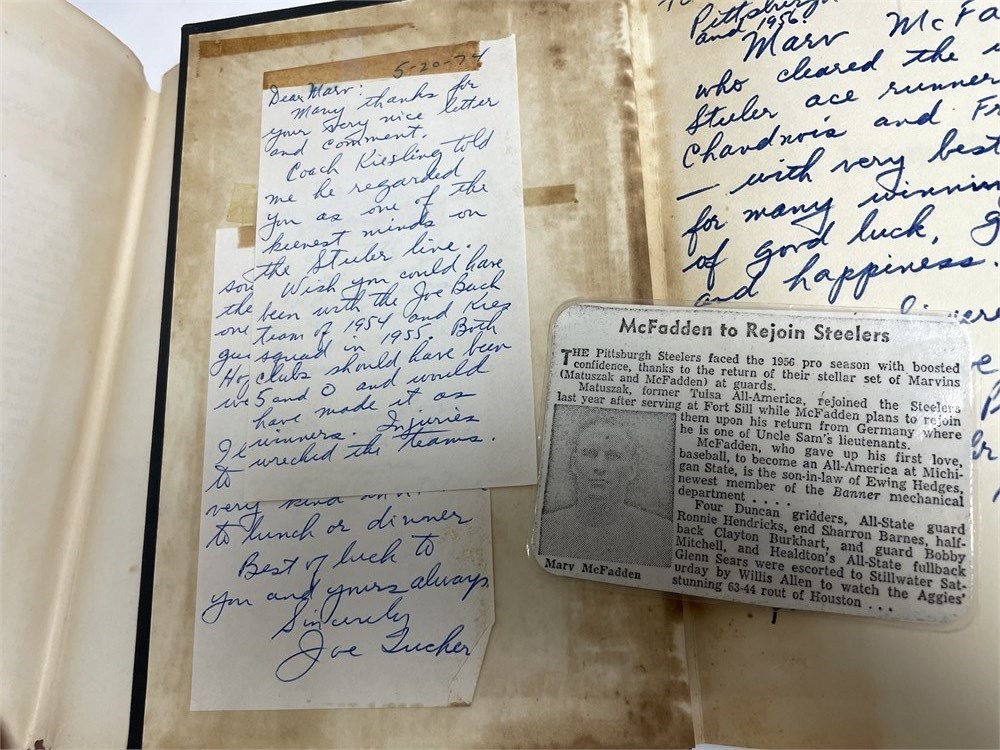 5-20-74
Dear Marv:
Many thanks for
your very nice letter
and comment.
Coach Kiesling told
me he regarded
you as one of the
keenest minds on
the Steeler line.
Wish you could have
been with the Joe Bach
team of 1954 and Kies
squad in 1955. Both
clubs should have been
5 and 0 and would
have made it as
winners. Injuries
wrecked the teams.
sou
the
one
gui
Ho
we
to
very kind
to lunch or dinner
Best of luck to
you and yours always.
Sincerely
Joe Tucker
Pittsburgh
and 1956
Marv McFa
who cleared the
Steeler ace runner
Chandnois and Fr
— with very best
for many winnin
of good luck, g
and happiness.
McFadden to Rejoin Steelers
THE Pittsburgh Steelers faced the 1956 pro season with boosted
confidence, thanks to the return of their stellar set of Marvins
(Matuszak and McFadden) at guards.
Matuszak, former Tulsa All-America, rejoined the Steelers
last year after serving at Fort Sill while McFadden plans to rejoin
them upon his return from Germany where
he is one of Uncle Sam's lieutenants.
McFadden, who gave up his first love,
baseball, to become an All-America at Michi-
gan State, is the son-in-law of Ewing Hedges,
newest member of the Banner mechanical
department . . .
Four Duncan gridders, All-State guard
Ronnie Hendricks, end Sharron Barnes, half-
back Clayton Burkhart, and guard Bobby
Mitchell, and Healdton's All-State fullback
Glenn Sears were escorted to Stillwater Sat-
urday by Willis Allen to watch the Aggies'
stunning 63-44 rout of Houston . . .
Marv McFadden